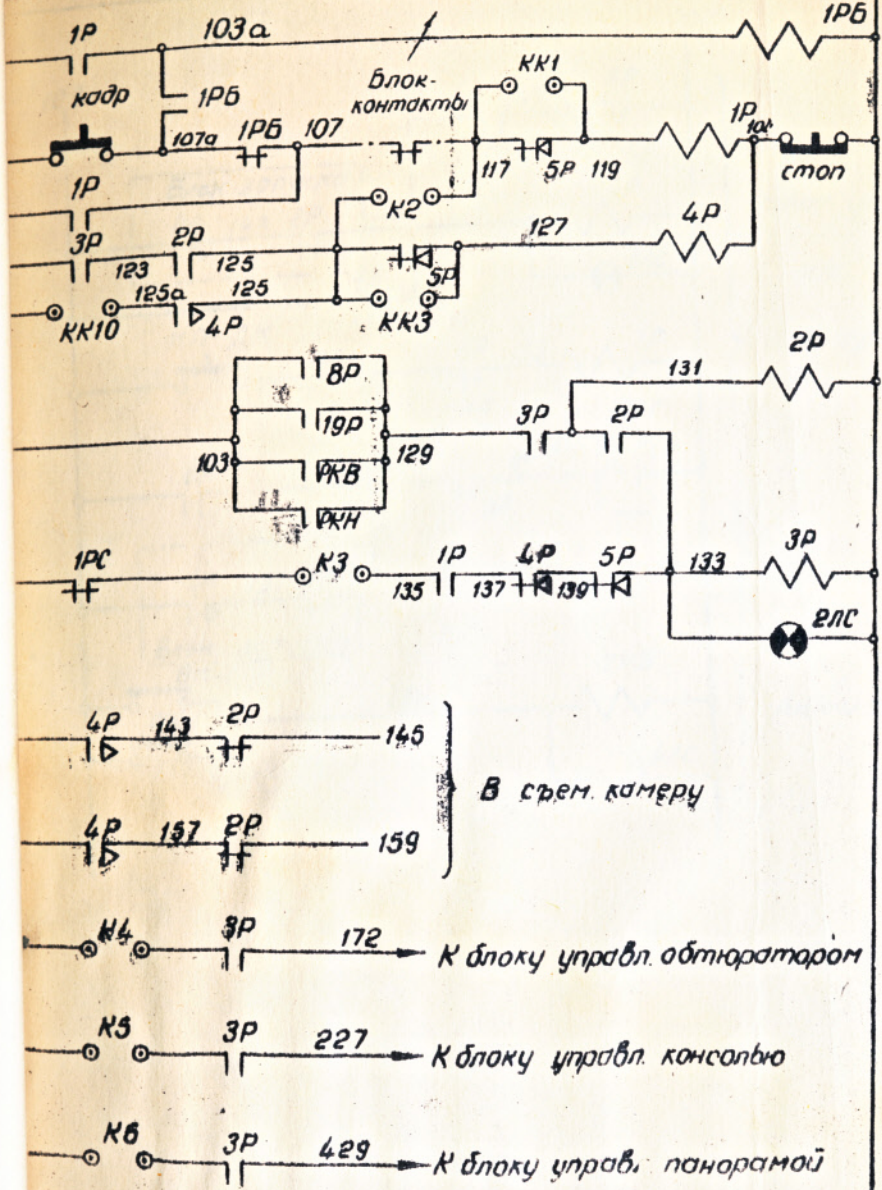 1Р 103а 1РБ
Блок-
контакты
КК1
кадр 1РБ
107а 1РБ 107 117 5Р 119 1Р стоп
1Р К2 4Р
3Р 123 2Р 125 5Р 127
КК10 125а 125 4Р КК3
8Р 131 2Р
19Р 3Р 2Р
103 РКВ 129
РКН
1РС К3 135 1Р 137 4Р 139 5Р 133 3Р
2ЛС
4Р 143 2Р 145
В съем. камеру
4Р 157 2Р 159
К4 3Р 172 К блоку управл. обтюратором
К5 3Р 227 К блоку управл. консолью
К6 3Р 429 К блоку управл. панорамой